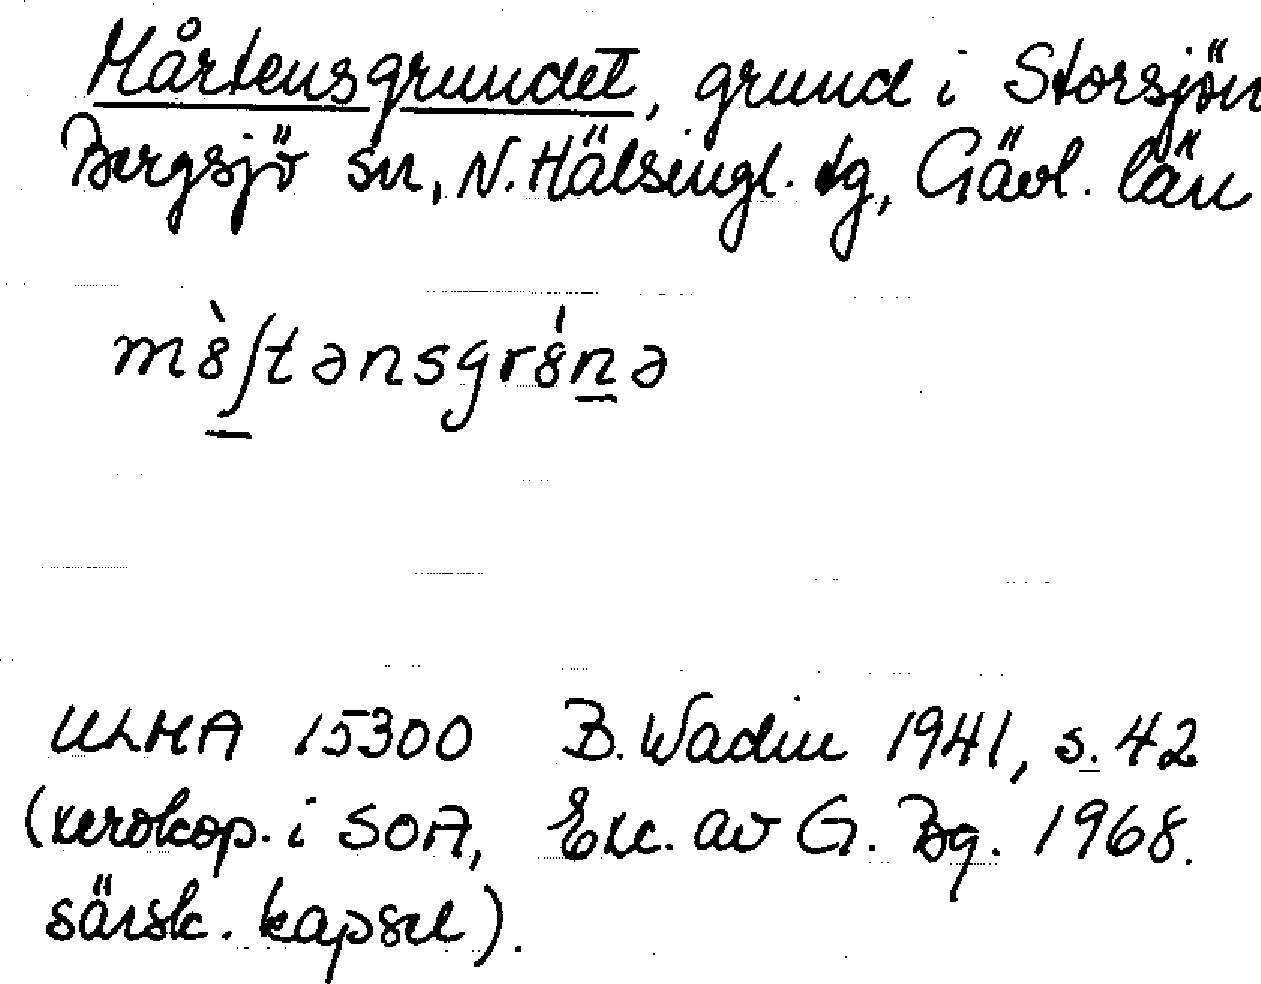 Mårtensgrundet, grund i Storsjön
Bergsjö sn, N. Hälsingl. dg, Gävl. län
mə̀ʃtənsgrə́nə
ULMA 15300 B. Wadin 1941, s. 42
(xerokop. i SOA, Exc. av G. Bg. 1968.
särsk. kapsel).